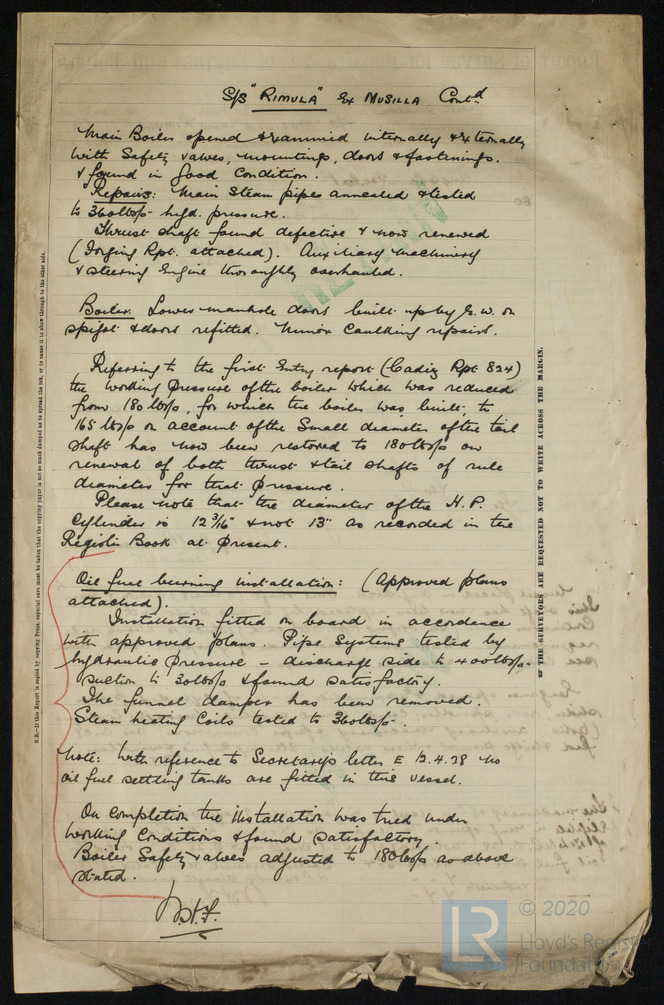 S/S "RIMULA" Ex MUSILLA Contd
Main Boiler opened & examined internally & externally
with Safety valves, mountings, doors & fastenings.
& found in good Condition.
Repairs: Main Steam pipes annealed & tested
to 360 lbs/o hyd. pressure.
Thrust shaft found defective & now renewed
(Forging Rpt. attached). Auxiliary Machinery
& steering Engine thoroughly overhauled.
Boiler: Lower manhole doors built up by E.W. on
spigot & doors refitted. Minor Caulking repairs.
Referring to the first Entry report (Cadiz Rpt 824)
the working pressure of the boiler which was reduced
from 180 lbs/o, for which the boiler was built, to
165 lbs/o on account of the Small diameter of the tail
shaft has now been restored to 180 lbs/o on
renewal of both thrust & tail shafts of rule
diameter for that pressure.
Please note that the diameter of the H.P.
Cylinder is 12 3/16" & not 13" as recorded in the
Register Book at present.
Oil fuel burning installation: (Approved plans
attached).
Installation fitted on board in accordance
with approved plans. Pipe Systems tested by
hydraulic pressure – discharge side to 400 lbs/o-
suction to 30 lbs/o & found satisfactory.
The funnel damper has been removed.
Steam heating Coils tested to 360 lbs/o-.
Note: With reference to Secretary's letter E 12.4.28 no
oil fuel settling tanks are fitted in this vessel.
On Completion the installation was tried under
working Conditions & found satisfactory.
Boiler Safety valves adjusted to 180 lbs/o as above
stated.
N.B.—If this Report is copied by copying Press, especial care must be taken that the copying paper is not so much damped as to spread the ink, or to cause it to show through to the other side.
THE SURVEYORS ARE REQUESTED NOT TO WRITE ACROSS THE MARGIN.
LR
© 2020
Lloyd's Register
Foundation